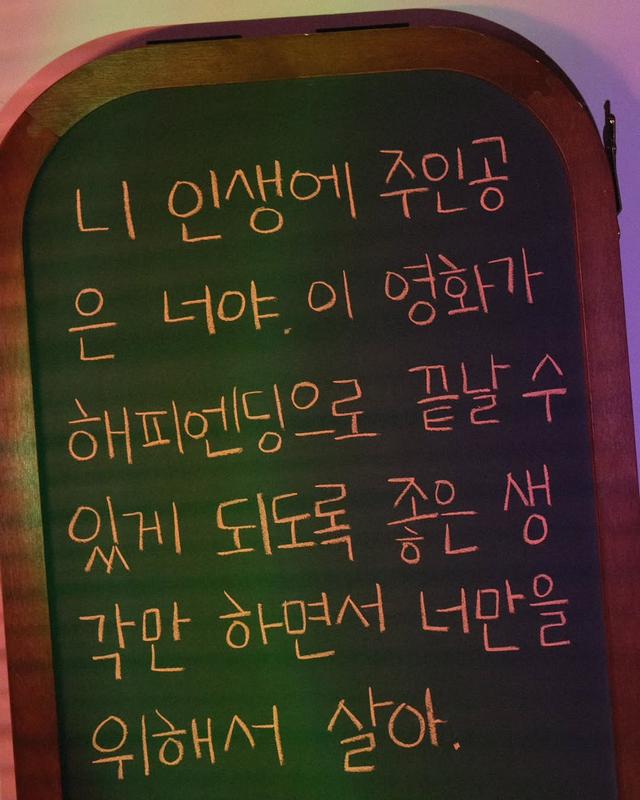 니 인생에 주인공
은 너야. 이 영화가
해피엔딩으로 끝날 수
있게 되도록 좋은 생
각만 하면서 너만을
위해서 살아.